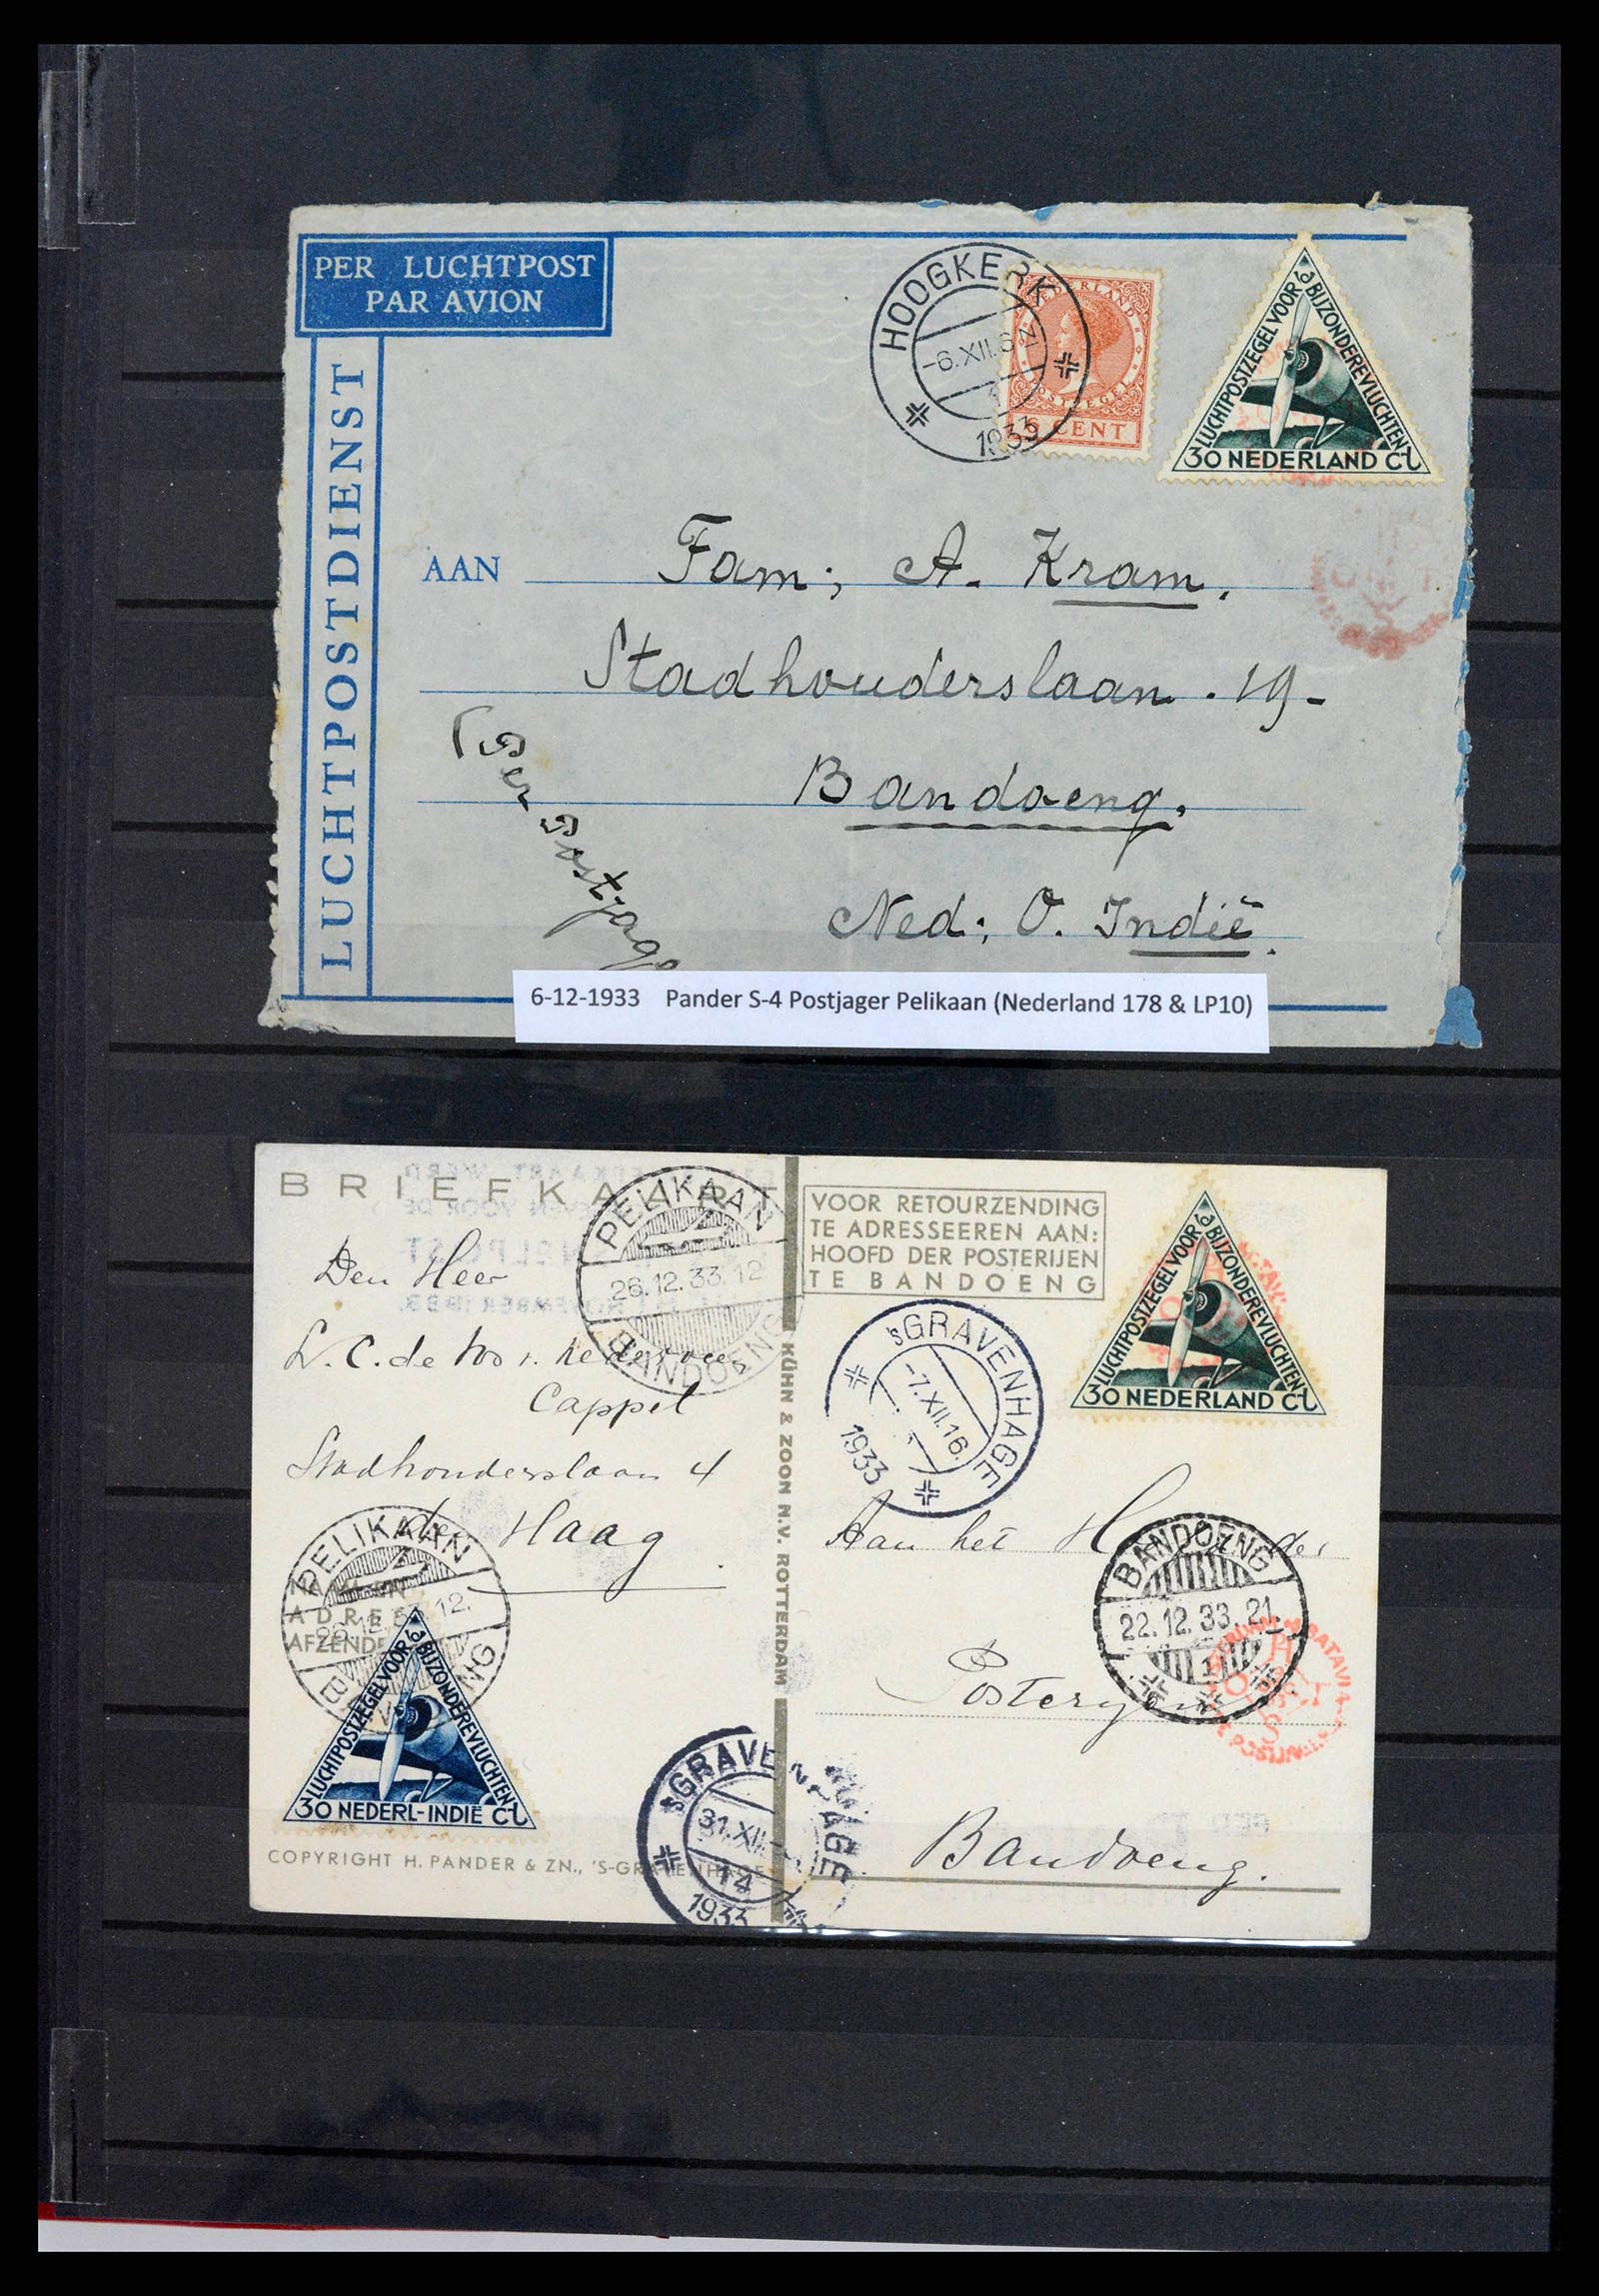 PER LUCHTPOST
PAR AVION
LUCHTPOSTDIENST
HOOGKERK
-6.XII.6
1
1933
NEDERLAND
POSTZEGEL
CENT
LUCHTPOSTZEGEL VOOR BIJZONDERE VLUCHTEN
30 NEDERLAND Ct
AAN
Fam; A. Kram.
Stadhouderslaan. 19-
Bandoeng.
Ned; O. Indië.
(Per Postjage
6-12-1933 Pander S-4 Postjager Pelikaan (Nederland 178 & LP10)
BRIEFKAART
PELIKAAN
26.12.33.12
BANDOENG
Den Heer
L. C. de
Cappel
Stadhouderslaan 4
den Haag
PELIKAAN
26.12. 12.
NAAM EN
ADRES
AFZENDE
LUCHTPOSTZEGEL VOOR BIJZONDERE VLUCHTEN
30 NEDERL-INDIË Ct
COPYRIGHT H. PANDER & ZN., 'S-GRAVENHAGE
KÜHN & ZOON N.V. ROTTERDAM
'sGRAVENHAGE
31.XII
14
1933
VOOR RETOURZENDING
TE ADRESSEEREN AAN:
HOOFD DER POSTERIJEN
TE BANDOENG
LUCHTPOSTZEGEL VOOR BIJZONDERE VLUCHTEN
30 NEDERLAND Ct
'sGRAVENHAGE
-7.XII.16.
1933
Aan het der
BANDOENG
22.12.33.21.
1
Posteryen
Bandoeng.